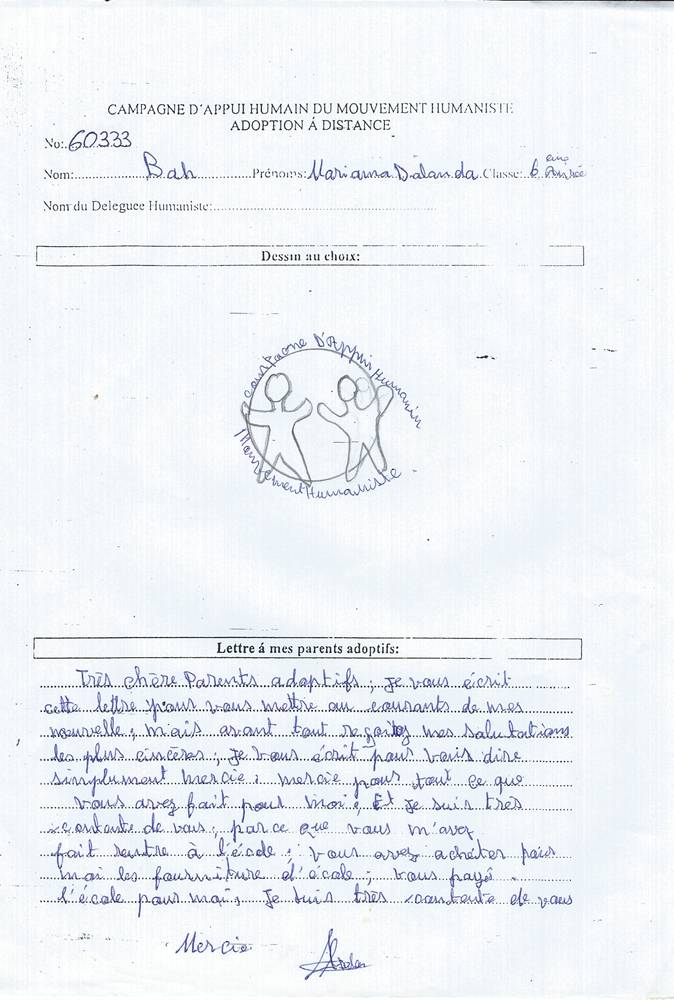 CAMPAGNE D'APPUI HUMAIN DU MOUVEMENT HUMANISTE
ADOPTION Á DISTANCE
No: 60333
Nom: Bah Prénoms: Mariama Dalanda Classe: 6 ème Année
Nom du Deleguee Humaniste:
Dessin au choix:
D'Appui Humain
Mouvement Humaniste
Lettre á mes parents adoptifs:
Très chère Parents adoptifs ; je vous écrit
cette lettre pour vous mettre au courants de mes
nouvelle ; mais avant tout mes salutations
les plus cincères ; je vous écrit pour vous dire
simplument mercie : mercie pour tout ce que
vous avez fait pour moi ; Et je suis très
contente de vous ; parce que vous m'avez
fait rentre à l'école ; vous avez acheter pour
moi les fourniture d'école ; vous payé
l'école pour moi, je suis très contente de vous
Mercie